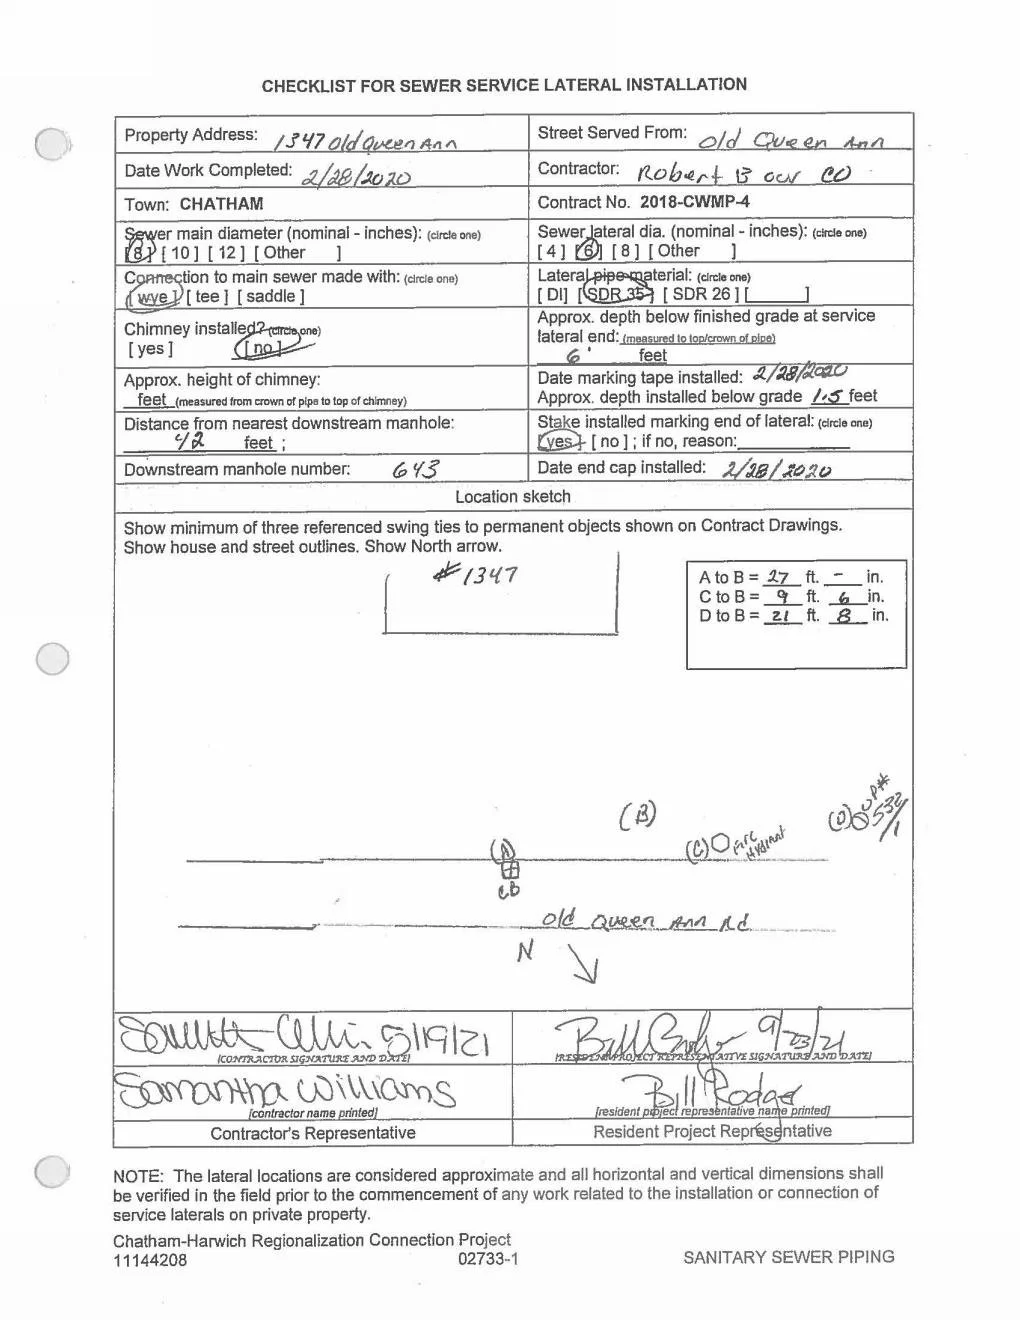 CHECKLIST FOR SEWER SERVICE LATERAL INSTALLATION
Property Address: 1347 Old Queen Ann
Street Served From: Old Queen Ann
Date Work Completed: 2/28/2020
Contractor: Robert B our CO
Town: CHATHAM
Contract No. 2018-CWMP-4
Sewer main diameter (nominal - inches): (circle one)
[8] [ 10 ] [ 12 ] [ Other ]
Sewer lateral dia. (nominal - inches): (circle one)
[ 4 ] [6] [ 8 ] [ Other ]
Connection to main sewer made with: (circle one)
[ wye ] [ tee ] [ saddle ]
Lateral pipe material: (circle one)
[ DI] [ SDR 35 ] [ SDR 26 ] [ ]
Chimney installed? (circle one)
[ yes ] [ no ]
Approx. depth below finished grade at service
lateral end: (measured to top/crown of pipe)
6' feet
Approx. height of chimney:
feet (measured from crown of pipe to top of chimney)
Date marking tape installed: 2/28/2020
Approx. depth installed below grade 1.5 feet
Distance from nearest downstream manhole:
42 feet ;
Stake installed marking end of lateral: (circle one)
[yes] [ no ] ; if no, reason:
Downstream manhole number: 643
Date end cap installed: 2/28/2020
Location sketch
Show minimum of three referenced swing ties to permanent objects shown on Contract Drawings.
Show house and street outlines. Show North arrow.
#1347
A to B = 27 ft. - in.
C to B = 9 ft. 6 in.
D to B = 21 ft. 8 in.
(B)
(A)
cb
(C) Fire
Hydrant
(D) UP#
532/1
Old Queen Ann Rd
N
5/19/21
[CONTRACTOR SIGNATURE AND DATE]
9/23/21
[RESIDENT PROJECT REPRESENTATIVE SIGNATURE AND DATE]
Samantha Williams
[contractor name printed]
Bill Rodge
[resident project representative name printed]
Contractor's Representative
Resident Project Representative
NOTE: The lateral locations are considered approximate and all horizontal and vertical dimensions shall
be verified in the field prior to the commencement of any work related to the installation or connection of
service laterals on private property.
Chatham-Harwich Regionalization Connection Project
11144208
02733-1
SANITARY SEWER PIPING